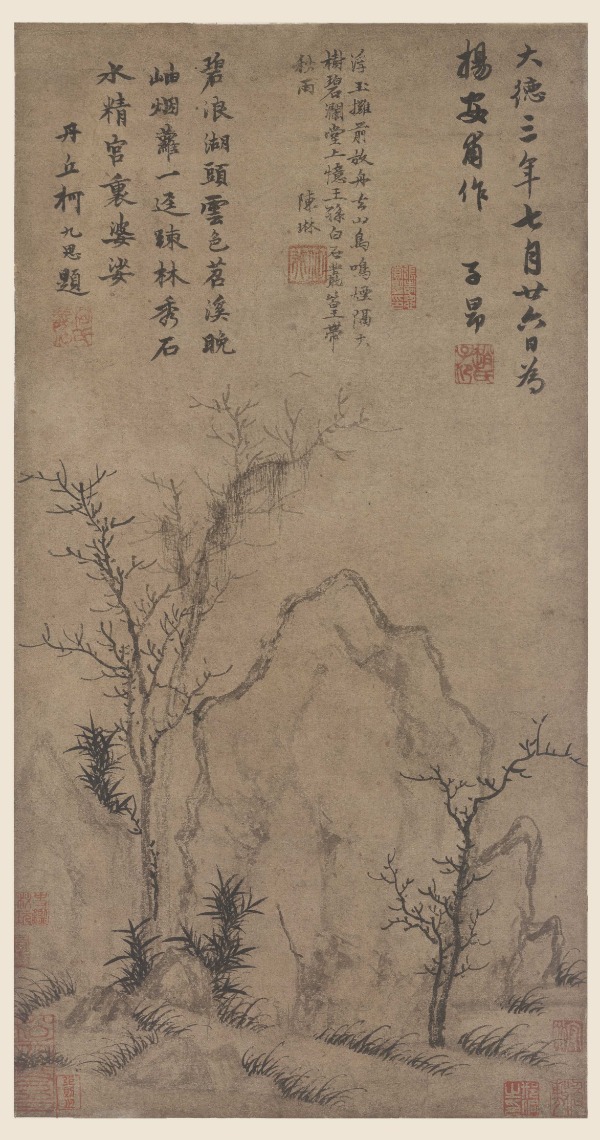 大德三年七月廿六日為
楊安甫作　子昂
浮玉攤前放舟去山鳥鳴煙隔大
樹碧瀾堂上憶王孫白石蒼筤帶
秋雨　陳琳
碧浪湖頭雲色苕溪晚
岫烟蘿一逕疎林秀石
水精宮裏婆娑
丹丘柯九思題